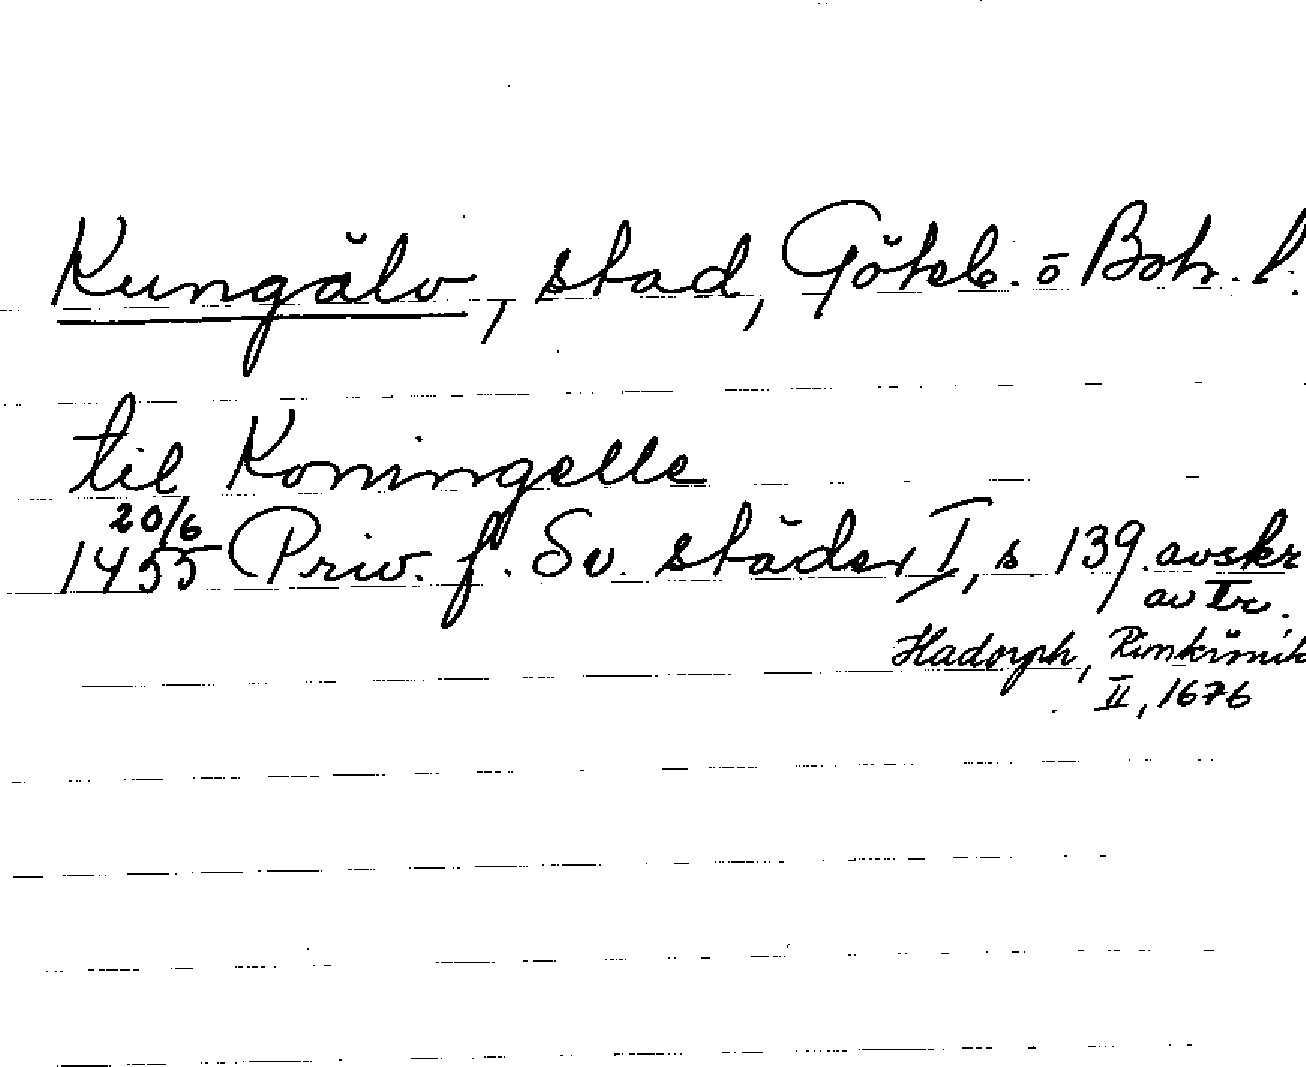 Kungälv, stad, Göteb. o Boh. l.
til Koningelle
20/6
1455 Priv. f. Sv. städer I, s 139. avskr
av tr.
Hadorph, Rimkrönik
II, 1676